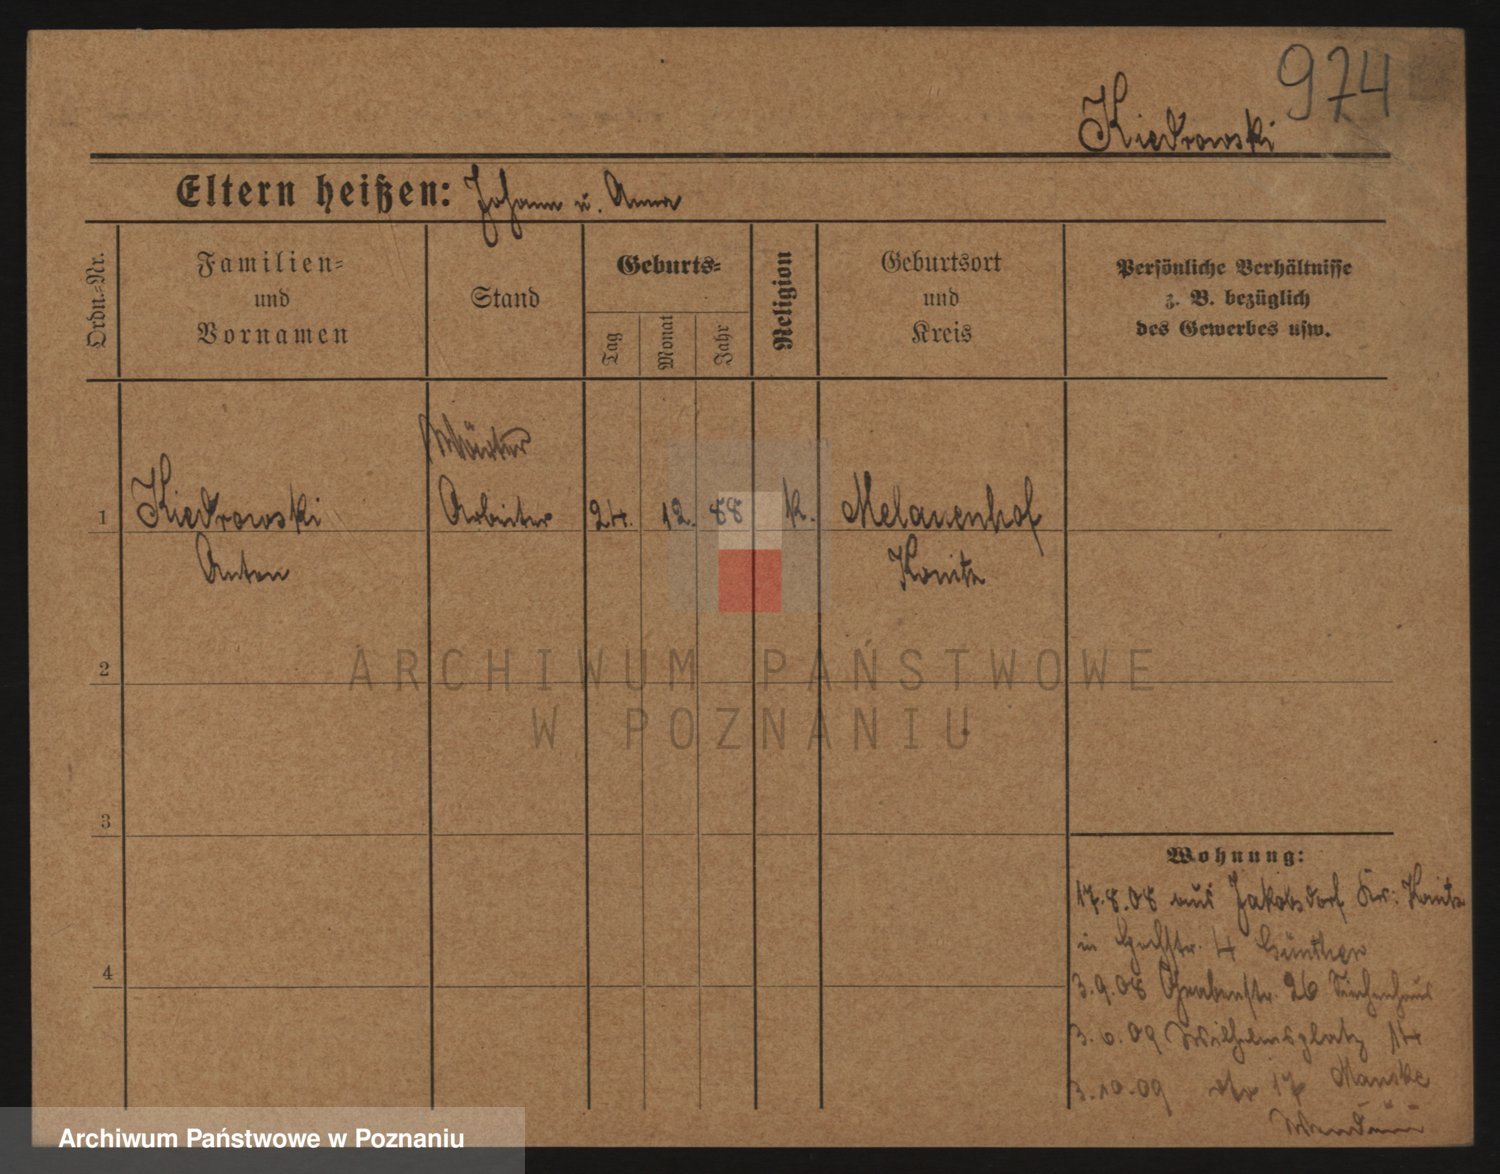 974
Kiedrowski
Eltern heißen: Johann u. Anna
Ordn.-Nr.
Familien-
und
Vornamen
Stand
Geburts-
Tag
Monat
Jahr
Religion
Geburtsort
und
Kreis
Persönliche Verhältnisse
z. B. bezüglich
des Gewerbes usw.
Wärter
1 Kiedrowski Arbeiter 24. 12. 88 k. Melanenhof
Anton Konitz
2
ARCHIWUM PAŃSTWOWE
W POZNANIU
3
Wohnung:
17.8.08 aus Jakobsdorf Kr: Konitz
in 4 Günther
4
3.9.08 Grabenstr. 26 Siechenhaus
3.6.09 Wilhelmsplatz 14
3.10.09 17 Manske
Archiwum Państwowe w Poznaniu